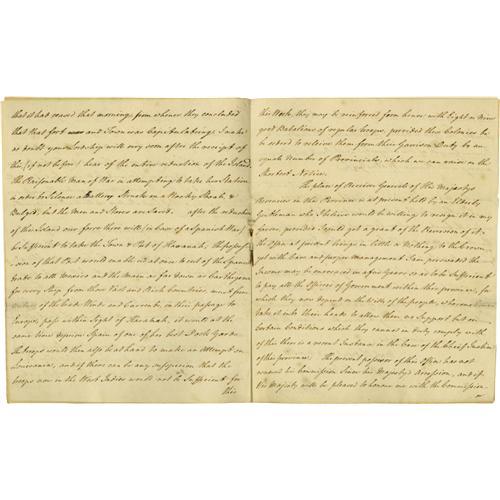 that it had ceased that morning, from whence they concluded
that that fort and Town was Capitulating; I make
no doubt your Lordship will very soon after the receipt of
this (if not before) hear of the entire reduction of the Island
the Raisonable Man of War in attempting to take her Station
in order to Silence a Battery Struck on a Rock, &
Bulged, but the Men and Stores are Saved. after the reduction
of this Island our force there will, in Case of a Spanish War,
be Sufficient to take the Town & Port of Havanah, the possess-
ion of that Port would enable us at once to cut of the Spanish
trade to all Mexico and the Main as far down as Carthagena
for every Ship from those Vast and Rich Countries, must from
the Winds and Currents, in their passage to
Europe, pass within Sight of Havanah, it would at the
same time deprive Spain of one of her best Dock Yards.
the troops would then also be at hand to make an Attempt on
Louisiana, and if there can be any suspicion that the
troops now in the West Indies would not be Sufficient for
this
this Work, they may be reinforced from hence with Eight or Nine
good Batalions of regular troops, provided these Colonies be
ordered to relieve them from their Garrison Duty by an
equal Number of Provincials, which we can raise on the
Shortest Notice.
The place of Receiver General of His Majestys
Revenues in this Province is at present held by an Elderly
Gentleman who I believe would be willing to resign it in my
favour, provided I could get a grant of the Reversion of it.
the Office at present brings in little or Nothing to the Crown
yet with care and proper Management I am persuaded the
Income may be encreased in a few Years so as to be Sufficient
to pay all the Officers of Government within this province, for
which they now depend on the Will of the people, who
take it into their heads to allow them no Support but on
Certain Conditions which they cannot in duty comply with
of this there is a recent Instance in the Case of the Chief Justice
of this province. The present possessor of this Office has not
renewed his Commission Since his Majestys Accession, and if
His Majesty will be pleased to honour me with the Commission